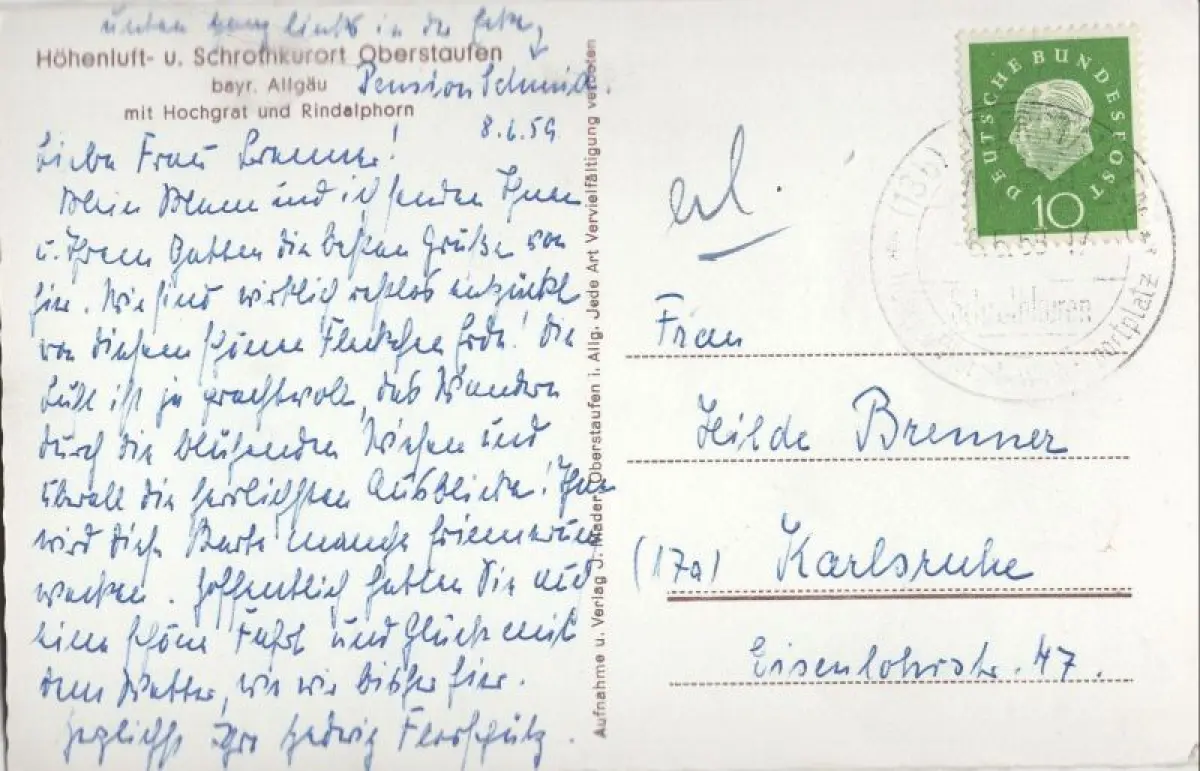 unten ganz links in der Ecke,
Höhenluft- u. Schrothkurort Oberstaufen
bayr. Allgäu
Pension Schmid.
mit Hochgrat und Rindalphorn
8.6.59
Liebe Frau Brenner!
Mein Mann und ich senden Ihnen
u. Ihrem Gatten die besten Grüße von
hier. Wir sind wirklich restlos entzückt
von diesem schönen Fleckchen Erde! Die
Luft ist ja prachtvoll, das Wandern
durch die blühenden Wiesen und
überall die herrlichsten Ausblicke! Ihnen
wird diese Karte manche Erinnerung
wecken. Hoffentlich hatten Sie auch
eine schöne Fahrt und Glück mit
dem Wetter, wie wir bisher hier.
Herzlichst Ihre Hedwig
Aufnahme u. Verlag J. Mader, Oberstaufen i. Allg. Jede Art Vervielfältigung verboten
erl.
DEUTSCHE BUNDESPOST
10
(13b)
Schrothkuren
Frau
Hilde Brenner
(17a) Karlsruhe
Eisenlohrstr. 47.